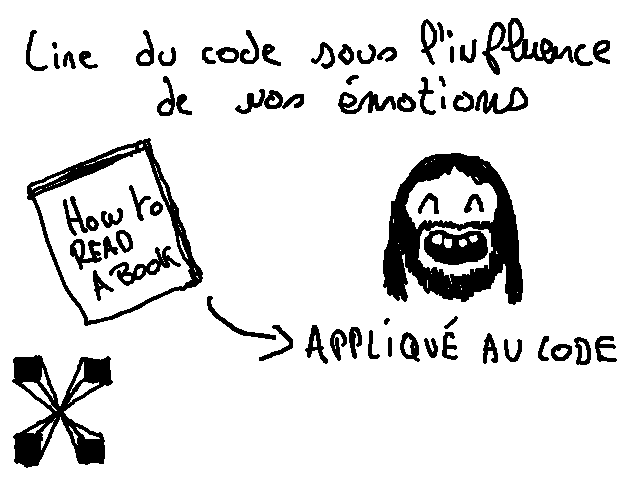 Lire du code sous l'influence
de nos émotions
How to
READ
A BOOK
APPLIQUÉ AU CODE